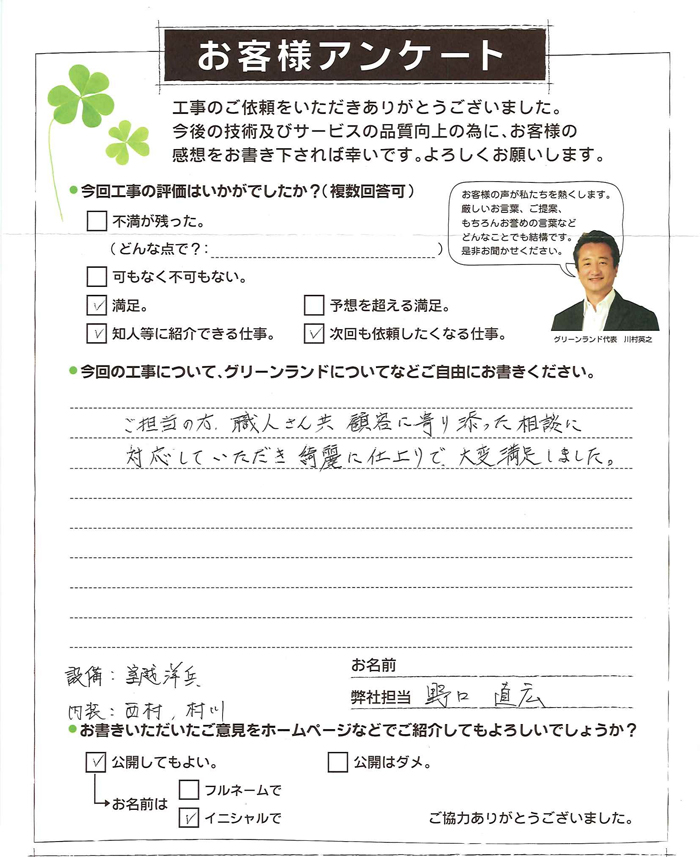 お客様アンケート
工事のご依頼をいただきありがとうございました。
今後の技術及びサービスの品質向上の為に、お客様の
感想をお書き下されば幸いです。よろしくお願いします。
今回工事の評価はいかがでしたか？（複数回答可）
不満が残った。
（どんな点で？： ）
可もなく不可もない。
満足。
予想を超える満足。
知人等に紹介できる仕事。
次回も依頼したくなる仕事。
お客様の声が私たちを熱くします。
厳しいお言葉、ご提案、
もちろんお誉めの言葉など
どんなことでも結構です。
是非お聞かせください。
グリーンランド代表 川村英之
今回の工事について、グリーンランドについてなどご自由にお書きください。
ご担当の方、職人さん共 顧客に寄り添った相談に
対応していただき 綺麗に仕上りで、大変満足しました。
設備：室越洋兵
内装：西村、村川
お名前
弊社担当 野口 直広
お書きいただいたご意見をホームページなどでご紹介してもよろしいでしょうか？
公開してもよい。
公開はダメ。
お名前は
フルネームで
イニシャルで
ご協力ありがとうございました。